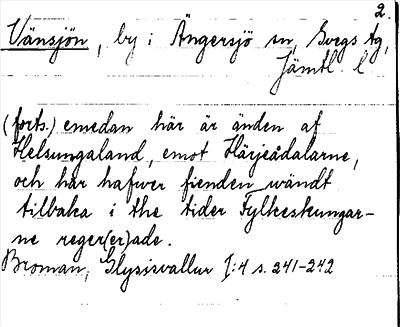 2.
Vänsjön, by i Ängersjö sn, Svegs tg,
Jämtl. l
(forts.) emedan här är änden af
Helsungaland, emot Härjeådalarne,
och här hafwer fienden wändt
tilbaka i the tider Fylkeskungar-
ne reger(er)ade.
Broman, Glysisvallur I:4 s. 241-242